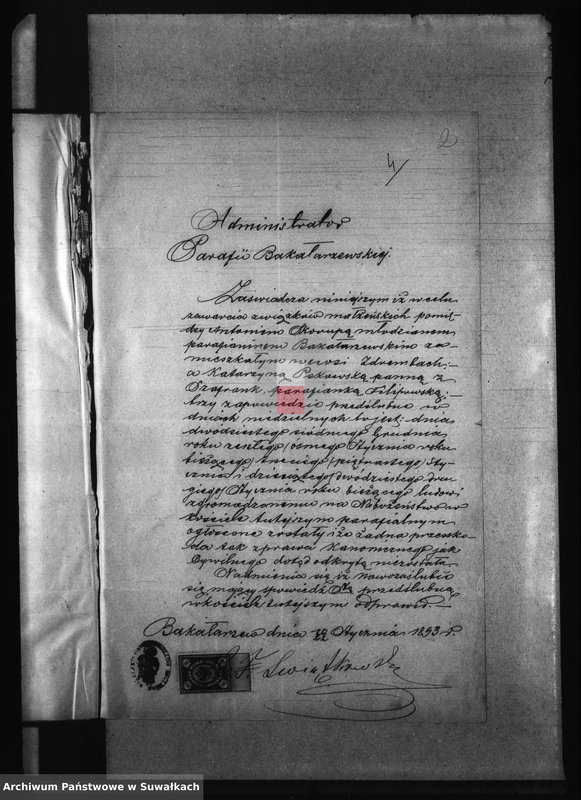 2
4/
Administrator
Parafii Bakałarzewskiej.
Zaświadcza niniejszym iż w celu
zawarcia związków małżeńskich pomię-
dzy Antoniem Skorupą młodzianem
parafianinem Bakałarzewskim za-
mieszkałym we wsi Zdrembach,
a Katarzyną Pakowską panną z
Szafrank, parafianką Filipowską,
trzy zapowiedzie przedślubne w
dniach niedzielnych to jest: dnia
dwudziestego siódmego Grudnia
roku zeszłego /ósmego Stycznia roku
bieżącego/, trzeciego /piętnastego/ Sty-
cznia i dziesiątego /dwudziestego dru-
giego/ Stycznia roku bieżącego ludowi
zgromadzonemu na Nabożeństwo w
kościele tutejszym parafialnym
ogłoszone zostały i że żadna przeszko-
da tak z prawa Kanonicznego jak
Cywilnego dotąd odkrytą nie została.
Nadmienia się iż nowozaślubić
się mający spowiedź przedślubną
w kościele tutejszym odprawił.
Bakałarzew dnia Stycznia 1893 r.
Archiwum Państwowe w Suwałkach